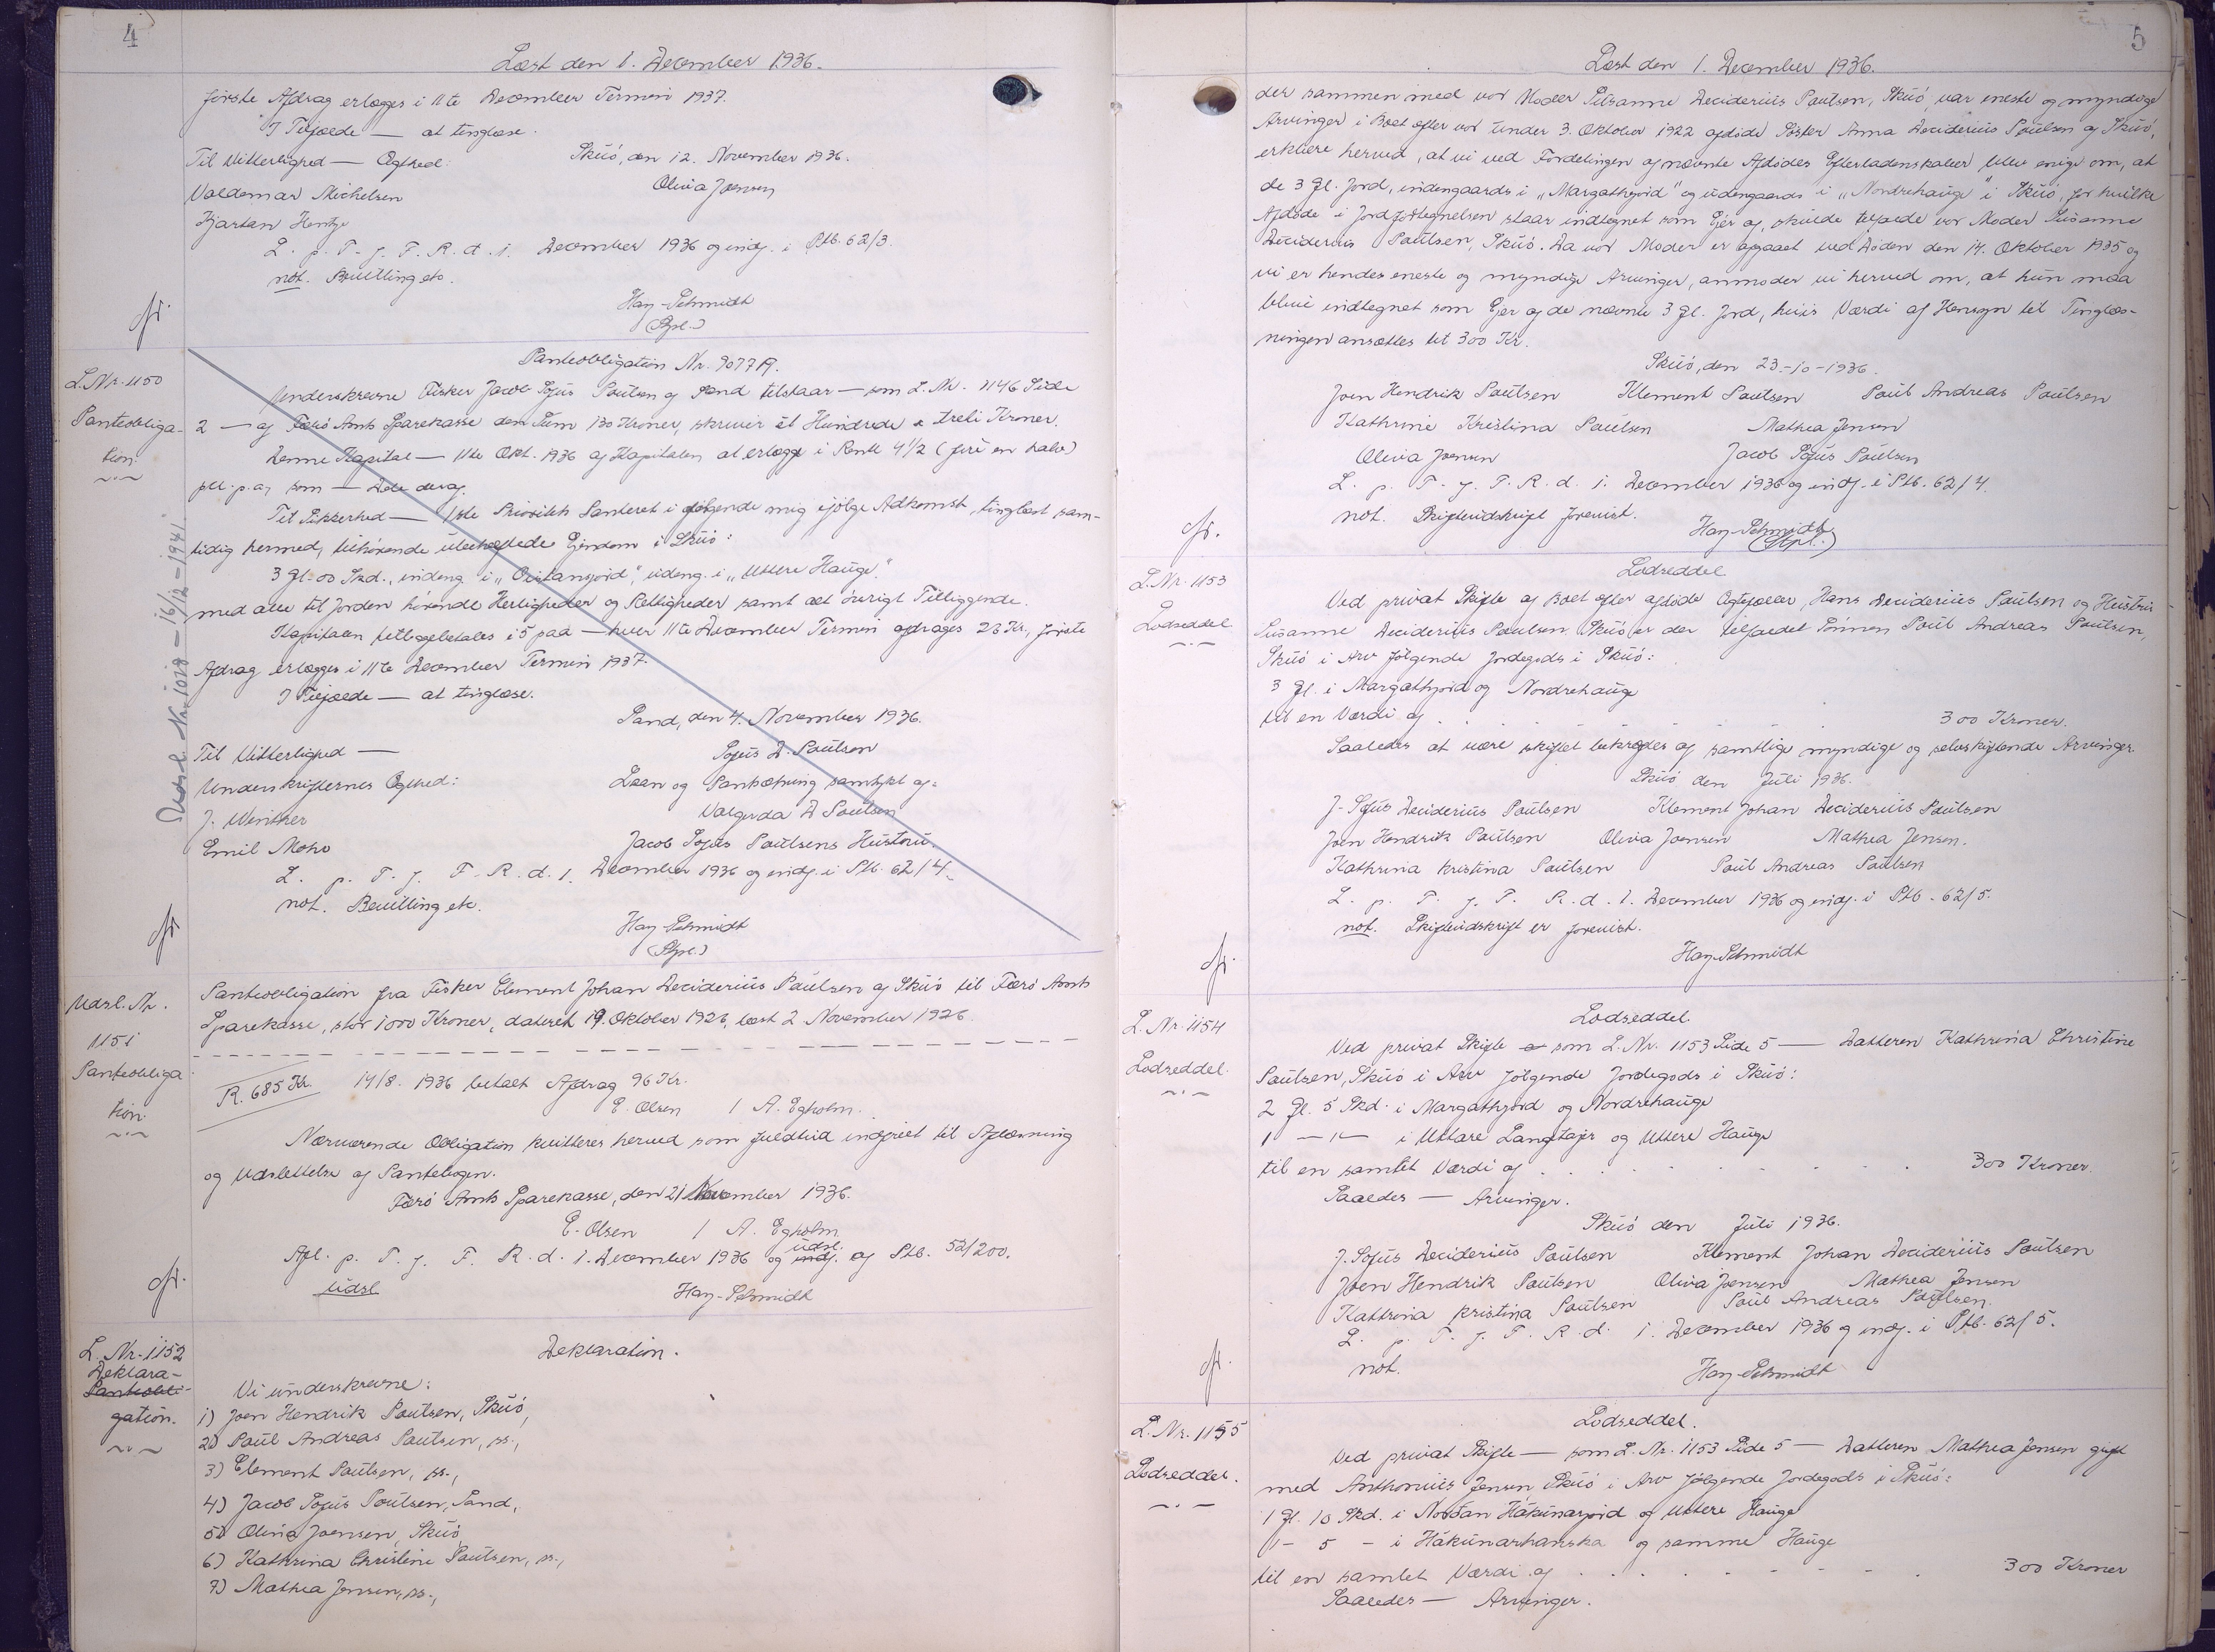 4
Læst den 1. December 1936.
første Afdrag erlægges i 11te December Termin 1937.
I Tilfælde — at tinglæse.
Til Vitterlighed — Ægthed:
Skuó, den 12. November 1936.
Valdemar Michelsen
Olivia Joensen
Kjartan Hentze
L. p. T. f. F. R. d. 1. December 1936 og indf. i Ptb. 62/3.
not. Bevilling etc.
Hay-Schmidt
(Stpl.)
L.Nr. 1150
Panteobliga-
tion.
Udsl. Nr. 1028 — 16/12 — 1941
Panteobligation Nr. 9077 A.
Underskrevne Fisker Jacob Sofus Poulsen af Sand tilstaar — som L.Nr. 1146 Side
2 — af Færø Amts Sparekasse den Sum 130 Kroner, skriver et Hundrede & treti Kroner.
Denne Kapital — 11te Okt. 1936 af Kapitalen at erlægge i Rente 4 1/2 (fire en halv)
pct. p.a. som — Dele deraf.
Til Sikkerhed — 1ste Prioritets Panteret i følgende mig ifølge Adkomst, tinglæst sam-
tidig hermed, tilhørende ubehæftede Ejendom i Skuó:
3 Gl. 00 Skd., indeng. i "Oristansjørd", udeng. i "Uttere Hauge".
med alle til Jorden hørende Herligheder og Rettigheder samt alt øvrigt Tilliggende.
Kapitalen tilbagebetales i 5 paa — hver 11te December Termin afdrages 26 Kr., første
Afdrag erlægges i 11te December Termin 1937.
I Tilfælde — at tinglæse.
Sand, den 4. November 1936.
Til Vitterlighed —
Sofus D. Poulsen
Underskrifternes Ægthed:
Laan og Pantsætning samtykt af:
J. Winther
Valgerda D Poulsen
Emil Mohr
Jacob Sofus Poulsens Hustru.
L. p. T. f. F. R. d. 1. December 1936 og indf. i Ptb. 62/4.
not. Bevilling etc.
Hay-Schmidt
(Stpl.)
Udsl. Nr.
1151
Panteobliga
tion.
Panteobligation fra Fisker Clement Johan Deciderius Paulsen af Skuó til Færø Amts
Sparekasse, stor 1000 Kroner, dateret 19. Oktober 1926, læst 2 November 1926.
R. 685 Kr. 14/8. 1936 betalt Afdrag 96 Kr.
E. Olsen / A. Egholm.
Nærværende Obligation kvitteres herved som fuldtud indfriet til Aflæsning
og Udslettelse af Pantebogen.
Færø Amts Sparekasse, den 21 November 1936.
E. Olsen / A. Egholm
Afl. p. T. f. F. R. d. 1. December 1936 og indf. udsl. af Ptb. 52/200.
udsl
Hay-Schmidt
L. Nr. 1152
Deklara-
Panteobli-
gation.
Deklaration.
Vi underskrevne:
1) Joen Hendrik Poulsen, Skuó,
2) Paul Andreas Poulsen, ss.,
3) Clement Poulsen, ss.,
4) Jacob Sofus Poulsen, Sand,
5) Olivia Joensen, Skuó,
6) Kathrina Christine Poulsen, ss.,
7) Mathea Jensen, ss.,
5
Læst den 1. December 1936.
der sammen med vor Moder Susanne Deciderius Poulsen, Skuó, var eneste og myndige
Arvinger i Boet efter vor under 3. Oktober 1922 afdøde Søster Anna Deciderius Poulsen af Skuó,
erklære herved, at vi ved Fordelingen af nævnte Afdødes Efterladenskaber blev enige om, at
de 3 Gl. Jord, indengaards i "Margathjørd" og udengaards i "Nordrehauge" i Skuó, for hvilke
Afdøde i Jordfortegnelsen staar indtegnet som Ejer af, skulde tilfalde vor Moder Susanne
Deciderius Poulsen, Skuó. Da vor Moder er afgaaet ved Døden den 14. Oktober 1935 og
vi er hendes eneste og myndige Arvinger, anmoder vi herved om, at hun maa
blive indtegnet som Ejer af de nævnte 3 Gl. Jord, hvis Værdi af Hensyn til Tinglæs-
ningen ansættes til 300 Kr.
Skuó, den 23-10-1936.
Joen Hendrik Poulsen Klement Poulsen Paul Andreas Poulsen
Kathrine Kristina Paulsen Mathea Jensen
Olivia Joensen Jacob Sofus Poulsen
L. p. T. f. F. R. d. 1. December 1936 og indf. i Ptb. 62/4.
not. Skifteudskrift forevist.
Hay-Schmidt
(Stpl.)
L. Nr. 1153
Lodseddel
Lodseddel
Ved privat Skifte af Boet efter afdøde Ægtefæller, Hans Deciderius Poulsen og Hustru
Susanne Deciderius Poulsen, Skuó er der tilfaldet Sønnen Poul Andreas Poulsen,
Skuó i Arv følgende Jordegods i Skuó:
3 Gl. i Margathjørd og Nordrehauge
til en Værdi af . . . . 300 Kroner.
Saaledes at være skiftet bekræftes af samtlige myndige og selvskiftende Arvinger.
Skuó den Juli 1936.
J. Sofus Deciderius Poulsen Klement Johan Deciderius Poulsen
Joen Hendrik Poulsen Olivia Joensen Mathea Jensen.
Kathrina Kristina Poulsen Poul Andreas Poulsen
L. p. T. f. F. R. d. 1. December 1936 og indf. i Ptb. 62/5.
not. Skifteudskrift er forevist.
Hay-Schmidt
L. Nr. 1154
Lodseddel.
Lodseddel.
Ved privat Skifte som L. Nr. 1153 Side 5 — Datteren Kathrina Christine
Paulsen, Skuó i Arv følgende Jordegods i Skuó:
2 Gl. 5 Skd. i Margathjørd og Nordrehauge
1 — " — i Uttare Langtajr og Uttere Hauge
til en samlet Værdi af . . . . 300 Kroner.
Saaledes — Arvinger.
Skuó den Juli 1936.
J. Sofus Deciderius Poulsen Klement Johan Deciderius Poulsen
Joen Hendrik Poulsen Olivia Joensen Mathea Jensen
Kathrina Kristina Poulsen Poul Andreas Poulsen.
L. p. T. f. F. R. d. 1. December 1936 og indf. i Ptb. 62/5.
not.
Hay-Schmidt
L. Nr. 1155
Lodseddel.
Lodseddel.
Ved privat Skifte — som L. Nr. 1153 Side 5 — Datteren Mathea Jensen gift
med Anthonius Jensen, Skuó i Arv følgende Jordegods i Skuó:
1 Gl. 10 Skd. i Nordan Hákunarjørd og Uttere Hauge
1 - 5 - i Hákunarhanska og samme Hauge
til en samlet Værdi af . . . . 300 Kroner
Saaledes — Arvinger.